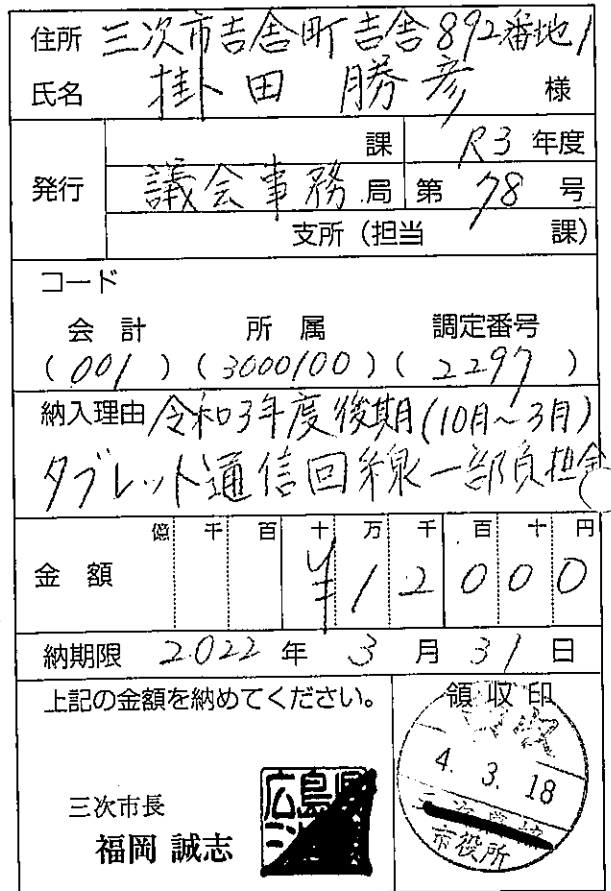 住所 三次市吉舎町吉舎892番地1
氏名 掛田 勝彦 様
発行
課 R3 年度
議会事務 局 第 78 号
支所(担当 課)
コード
会計 所属 調定番号
(001)(3000100)(2297)
納入理由 令和3年度後期(10月~3月)
タブレット通信回線一部負担金
億 千 百 十 万 千 百 十 円
金額 ¥12000
納期限 2022 年 3 月 31 日
上記の金額を納めてください。
三次市長
福岡 誠志
広島県
領収印
4. 3. 18
市役所